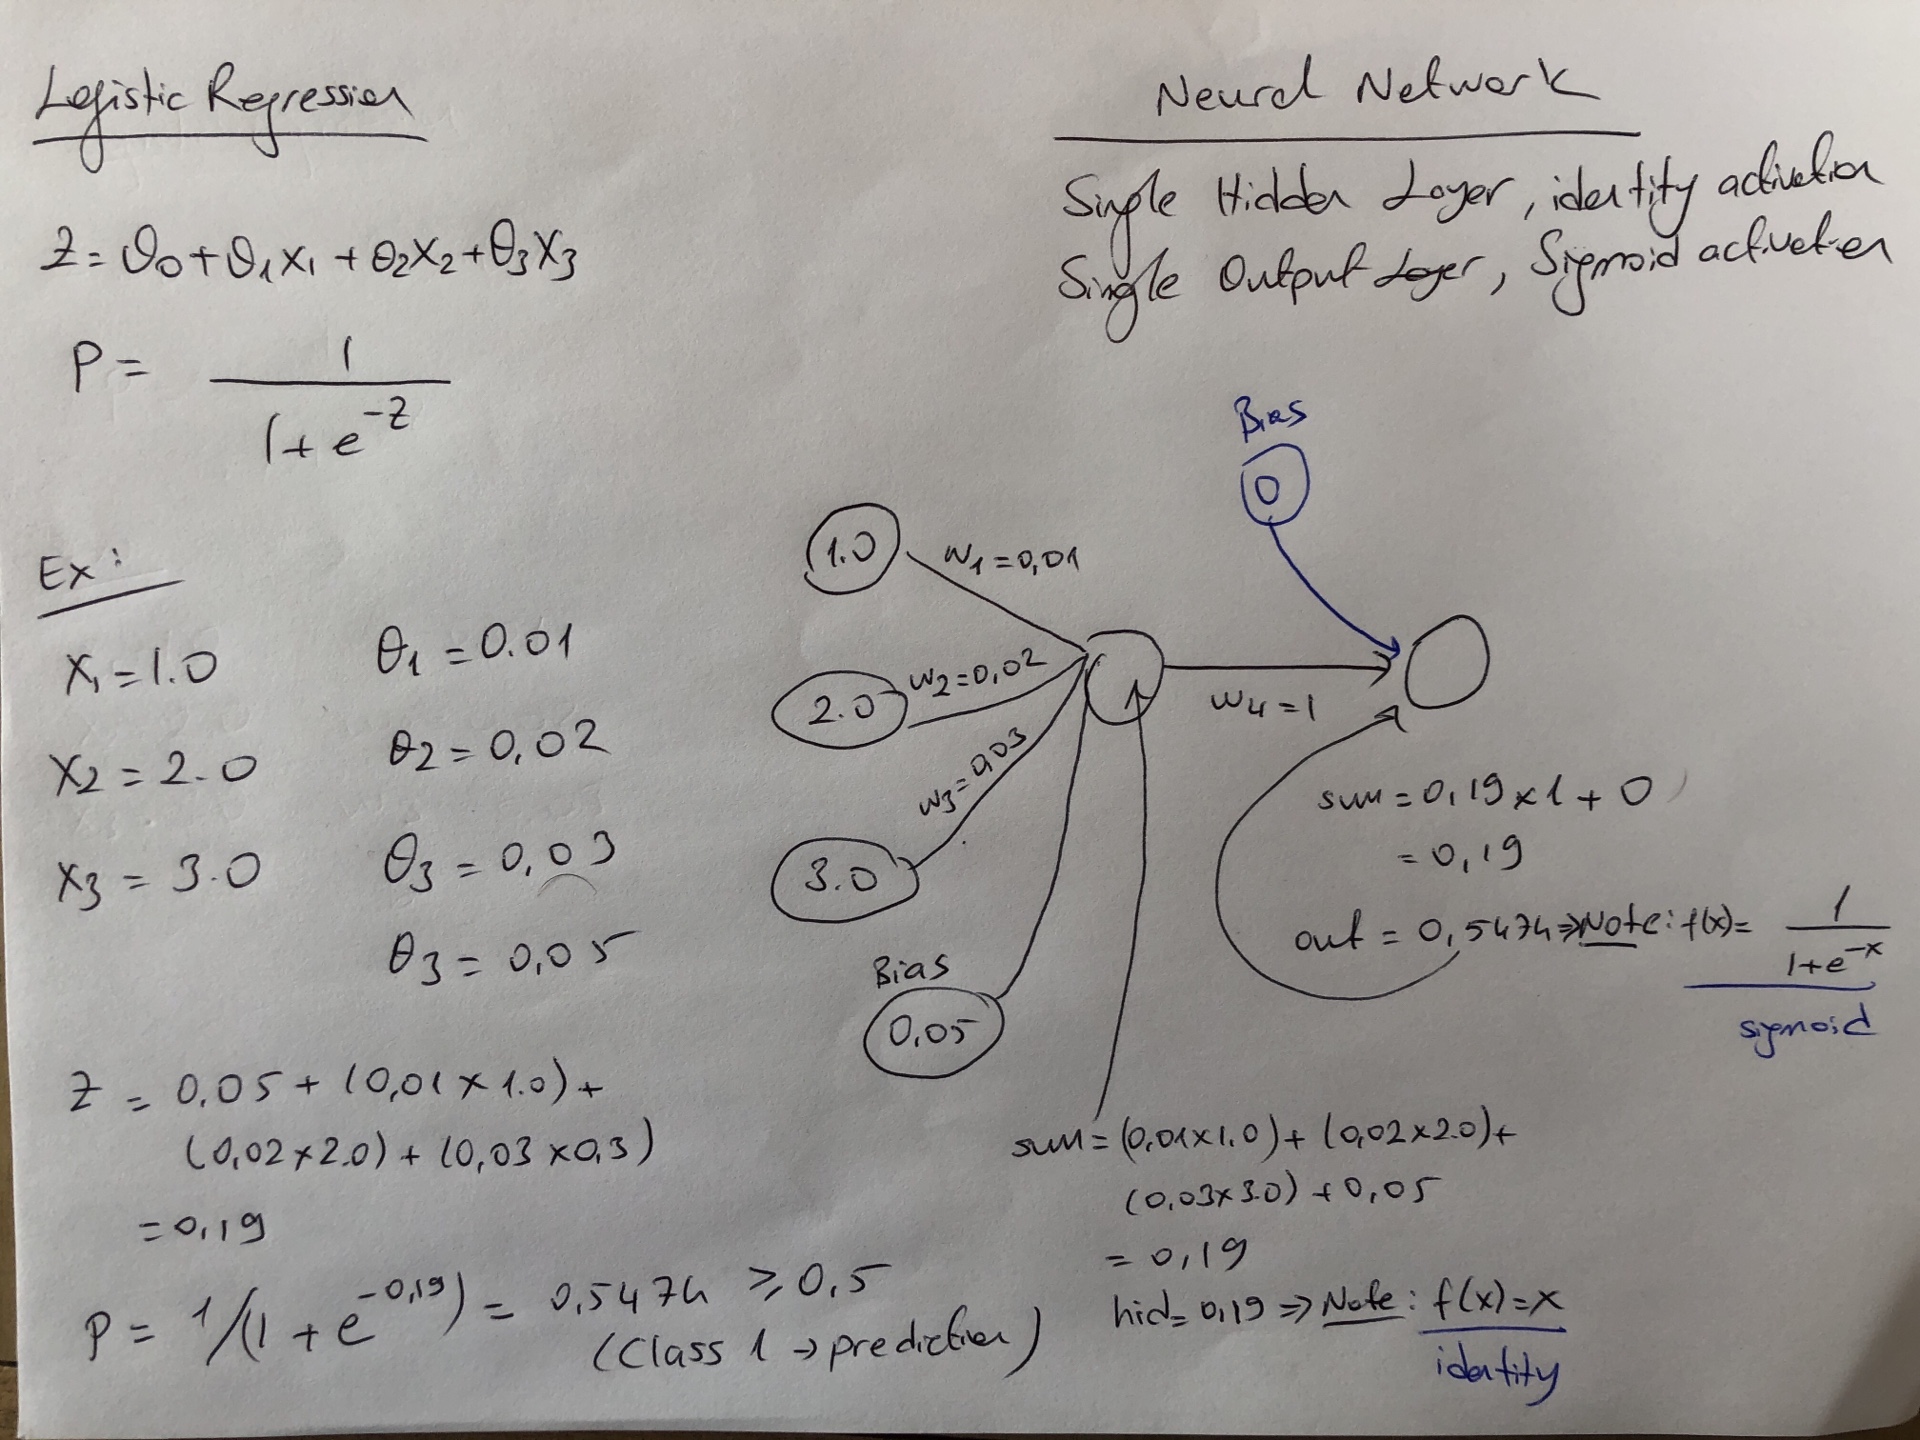 Logistic Regression
Z = θ0 + θ1 x1 + θ2 x2 + θ3 x3
P = 1 / (1 + e^-z)
Ex:
x1 = 1.0 θ1 = 0.01
x2 = 2.0 θ2 = 0,02
x3 = 3.0 θ3 = 0,03
θ3 = 0,05
Z = 0,05 + (0,01 x 1.0) +
(0,02 x 2.0) + (0,03 x 0,3)
= 0,19
P = 1/(1 + e^-0,19) = 0,5474 ≥ 0,5
(Class 1 → prediction)
Neural Network
Single Hidden Layer, identity activation
Single Output Layer, Sigmoid activation
Bias
0
1.0
w1 = 0,01
2.0
w2 = 0,02
3.0
w3 = 0,03
Bias
0,05
w4 = 1
sum = 0,19 x 1 + 0
= 0,19
out = 0,5474 ⇒ Note: f(x) = 1 / (1 + e^-x)
sigmoid
sum = (0,01x1.0) + (0,02x2.0) +
(0,03x3.0) + 0,05
= 0,19
hid = 0,19 ⇒ Note: f(x) = x
identity